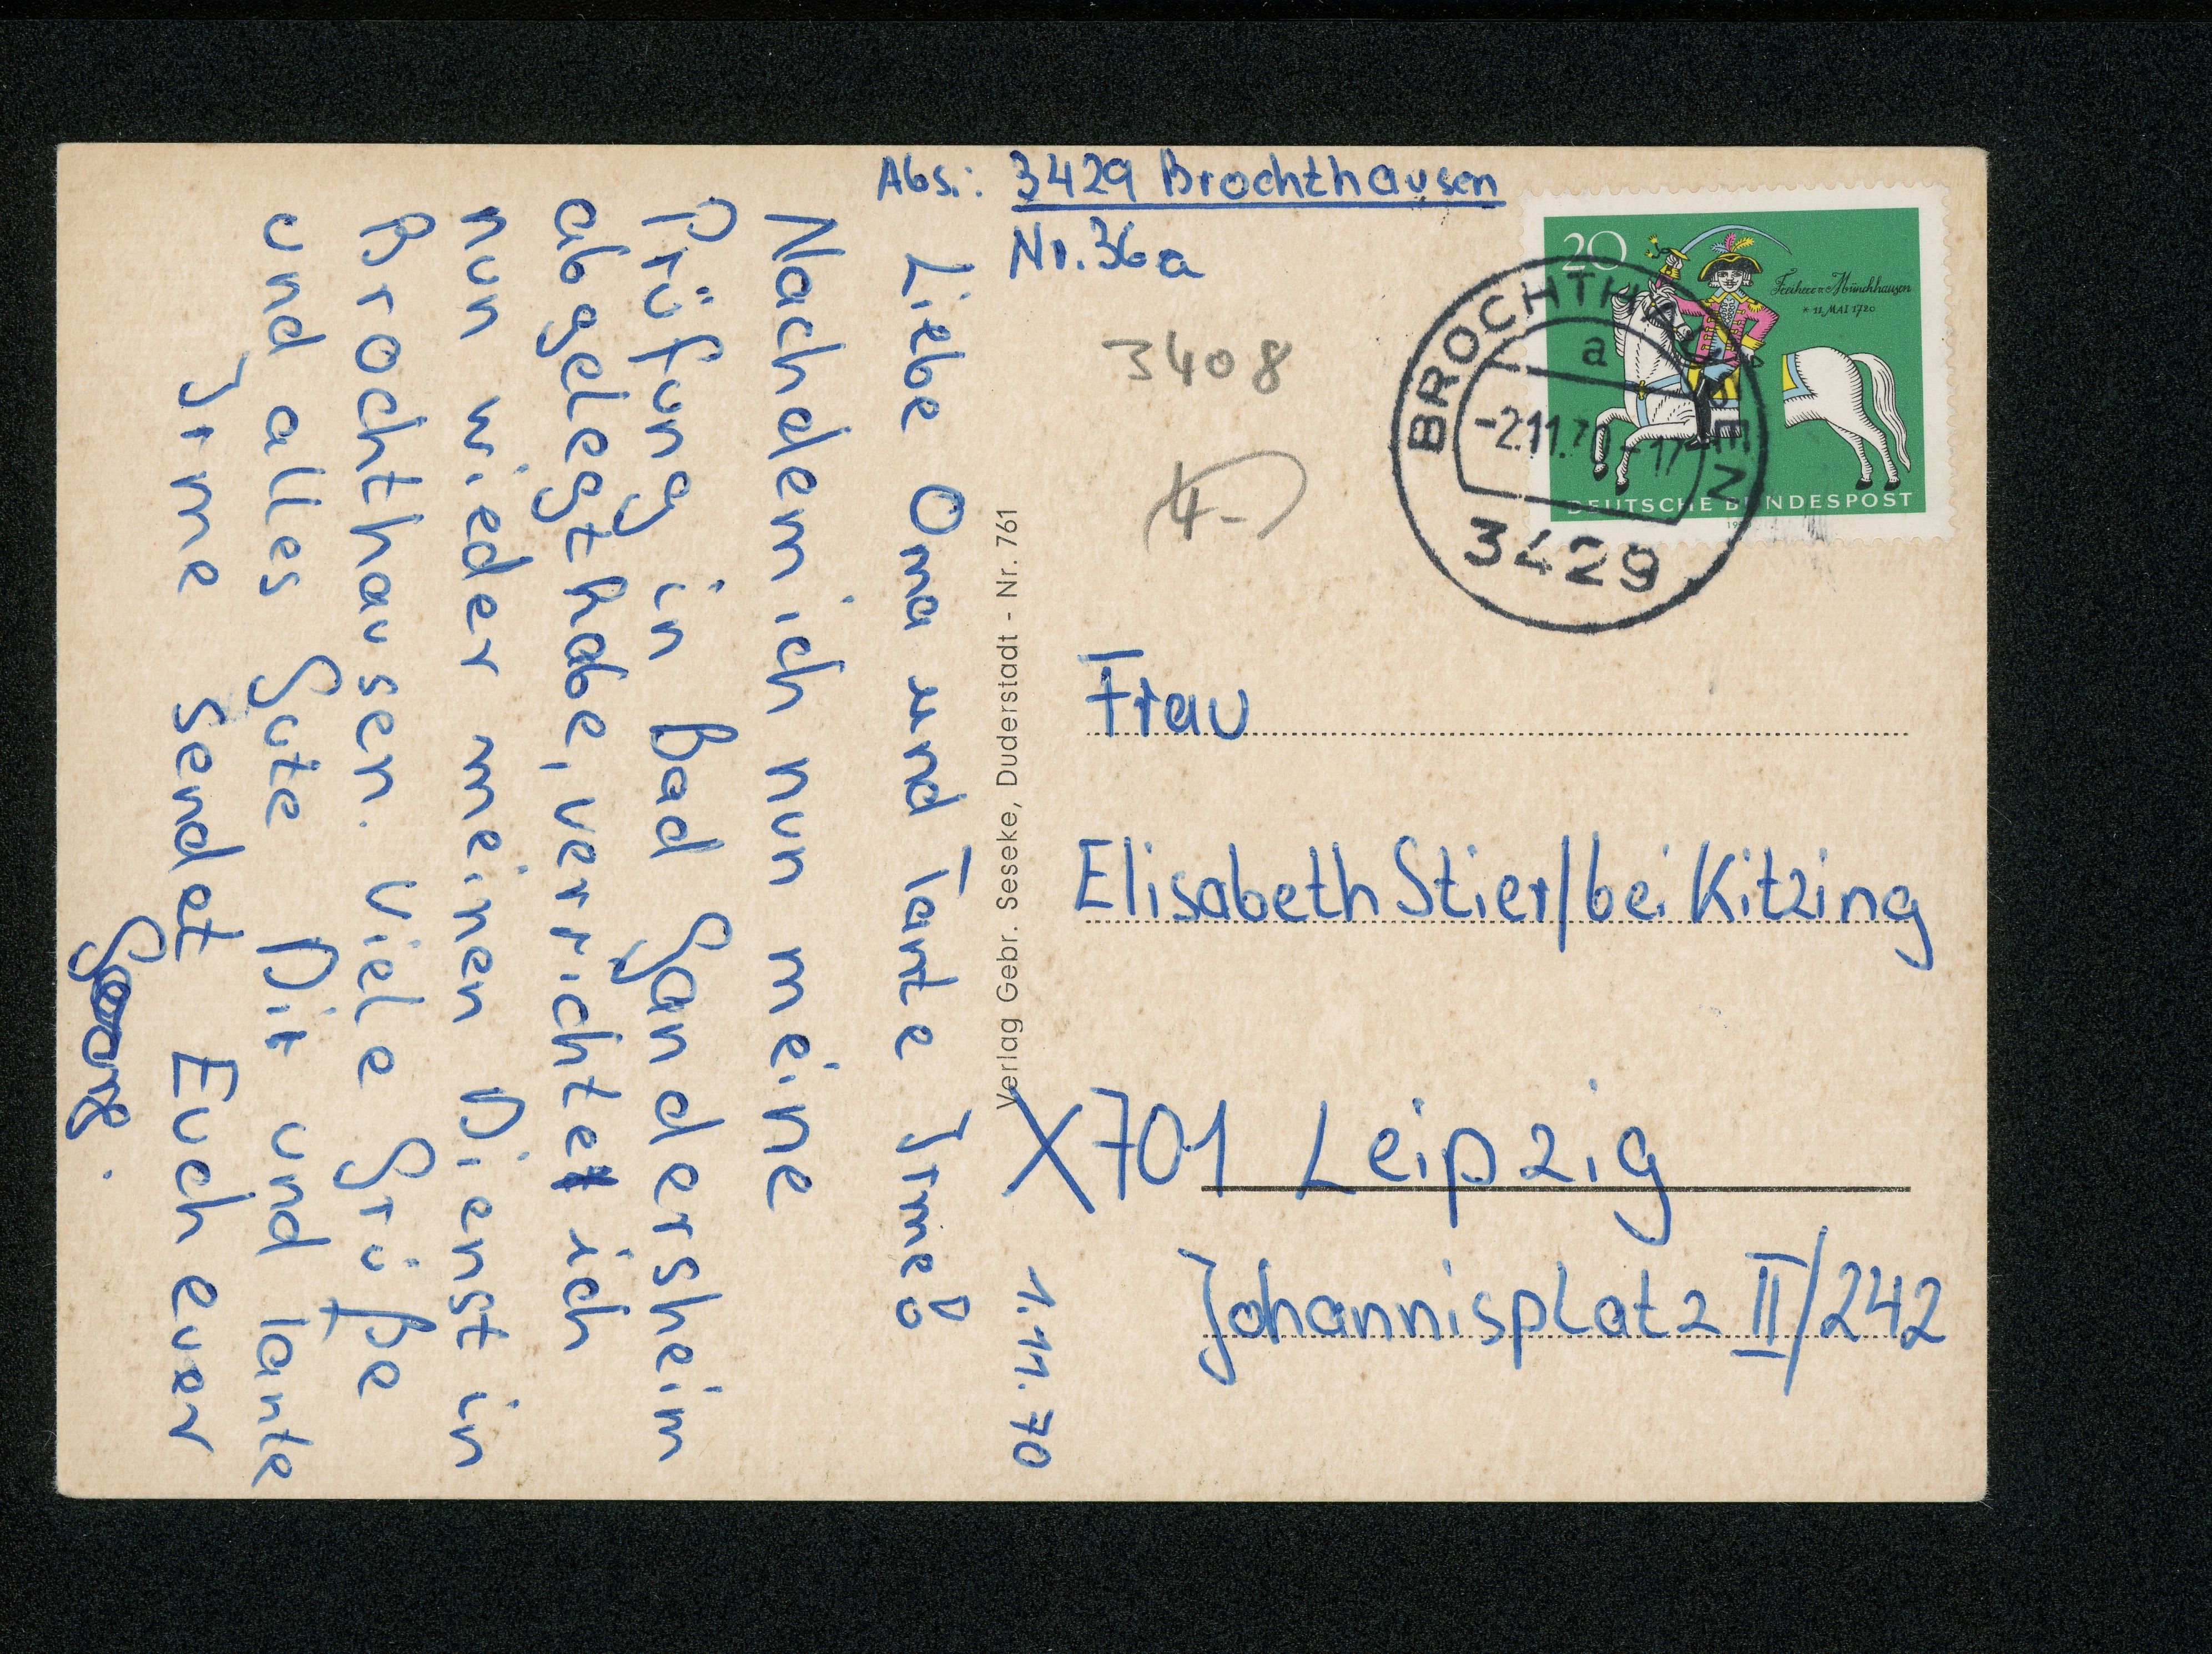 Abs.: 3429 Brochthausen
Nr. 36a
1.11.70
Liebe Oma und Tante Irme!
Nachdem ich nun meine
Prüfung in Bad Gandersheim
abgelegt habe, verrichtet ich
nun wieder meinen Dienst in
Brochthausen. Viele Grüße
und alles Gute Dir und Tante
Irme sendet Euch euer
Georg.
Verlag Gebr. Seseke, Duderstadt - Nr. 761
3408
4-
20
Freiherr v. Münchhausen
* 11. MAI 1720
DEUTSCHE BUNDESPOST
BROCHTHAUSEN
a
-2.11.70-17
3429
Frau
Elisabeth Stier/bei Kitzing
X701 Leipzig
Johannisplatz II/242